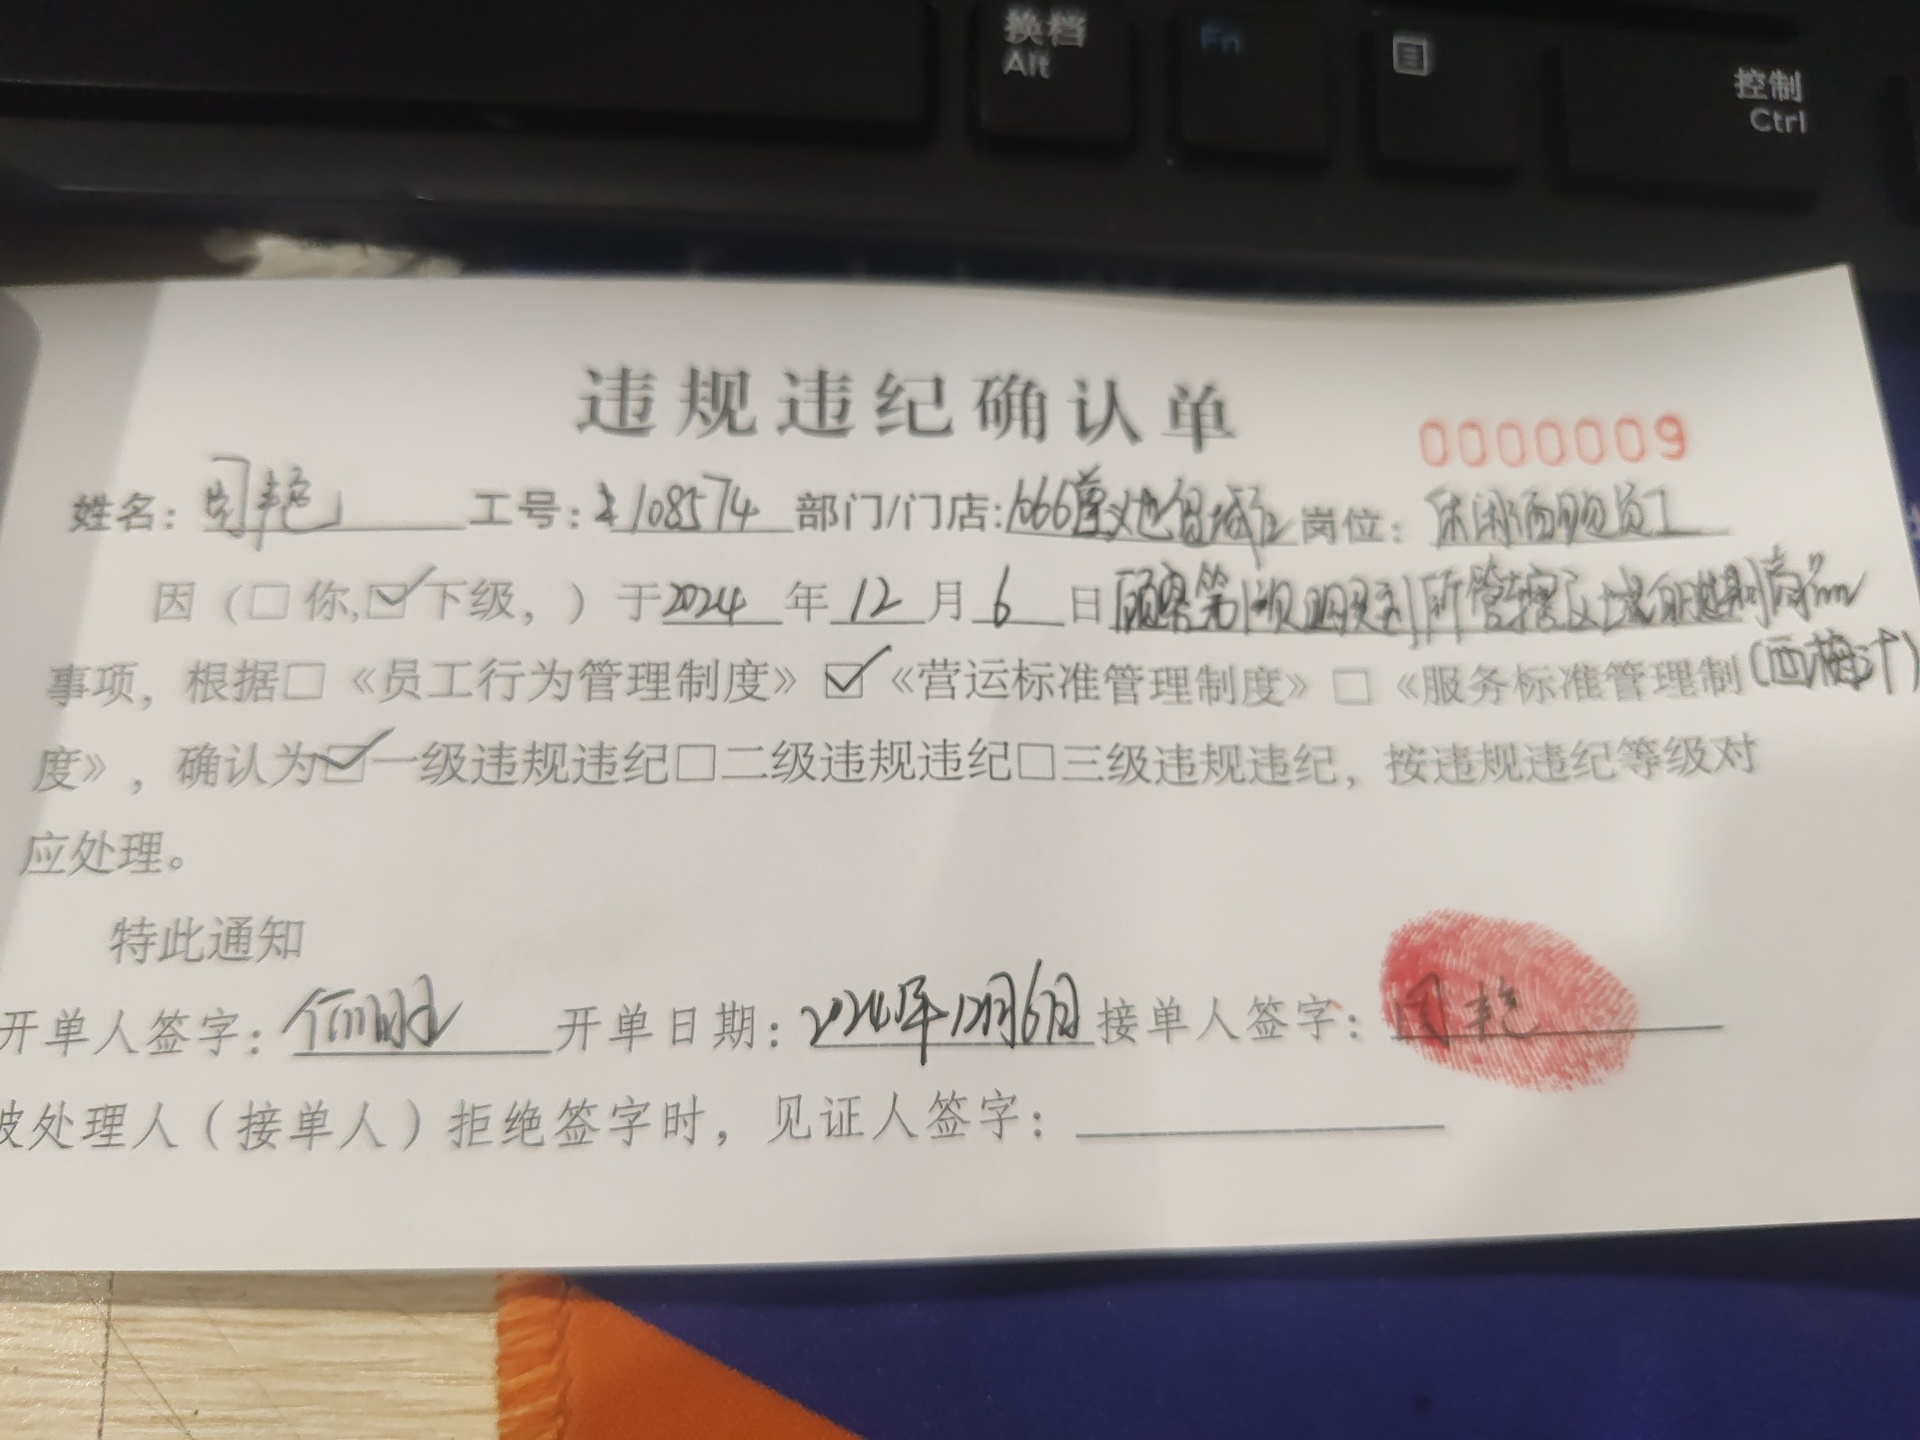 换档
Alt
Fn
控制
Ctrl
违规违纪确认单
0000009
姓名: 艳 工号: 108574 部门/门店: 1666遵义 岗位: 休闲酒饮员工
因（□你,☑下级，）于2024年12月6日顾客第 购买到所管辖区域 过期商品
事项，根据□《员工行为管理制度》☑《营运标准管理制度》□《服务标准管理制 (西梅汁)
度》，确认为☑一级违规违纪□二级违规违纪□三级违规违纪，按违规违纪等级对
应处理。
特此通知
开单人签字: 开单日期: 2024年12月6日 接单人签字: 艳
被处理人（接单人）拒绝签字时，见证人签字: